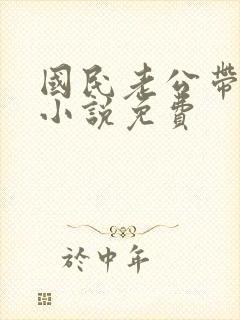 國民老公帶
小說免費
於中年